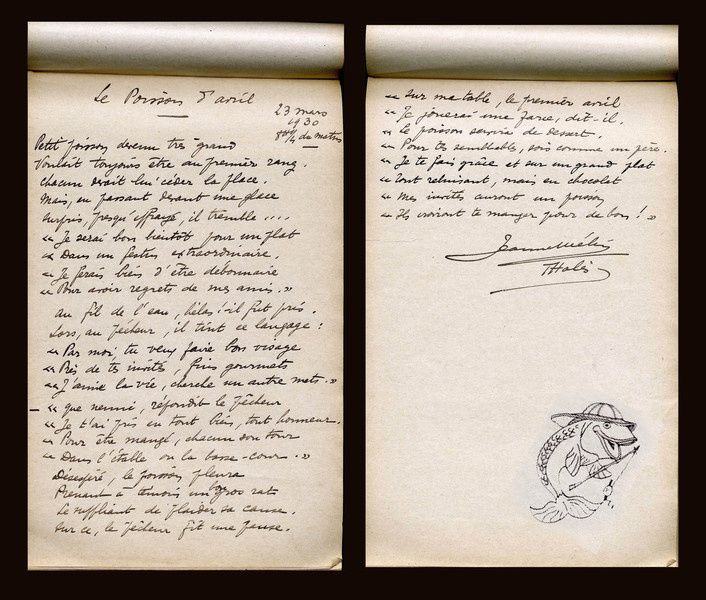 Le Poisson d'avril
23 mars
1930
8h 1/4 du matin
Petit poisson devenu très grand
Voulait toujours être au premier rang.
Chacun devait lui céder la place.
Mais, en passant devant une glace
Surpris, presqu'effrayé, il tremble ....
"Je serai bon bientôt pour un plat
"Dans un festin extraordinaire.
"Je ferais bien d'être débonnaire
"Pour avoir regrets de mes amis."
Au fil de l'eau, hélas! il fut pris.
Lors, au Pêcheur, il tint ce langage:
"Par moi, tu veux faire bon visage
"Près de tes invités, fins gourmets
"J'aime la vie, cherche un autre mets."
— "Que nenni, répondit le Pêcheur
"Je t'ai pris en tout bien, tout honneur.
"Pour être mangé, chacun son tour
"Dans l'étable ou la basse-cour."
Désespéré, le poisson pleura
Prenant à témoin un gros rat
Le suppliant de plaider sa cause.
Sur ce, le Pêcheur fit une pause.
"Sur ma table, le premier avril
"Je jouerai une farce, dit-il.
"Le poisson servira de dessert.
"Pour tes semblables, sois comme un père.
"Je te fais grâce et sur un grand plat
"Tout reluisant, mais en chocolat
"Mes invités auront un poisson
"Ils croiront te manger pour de bon!"
Jeanne Méliès